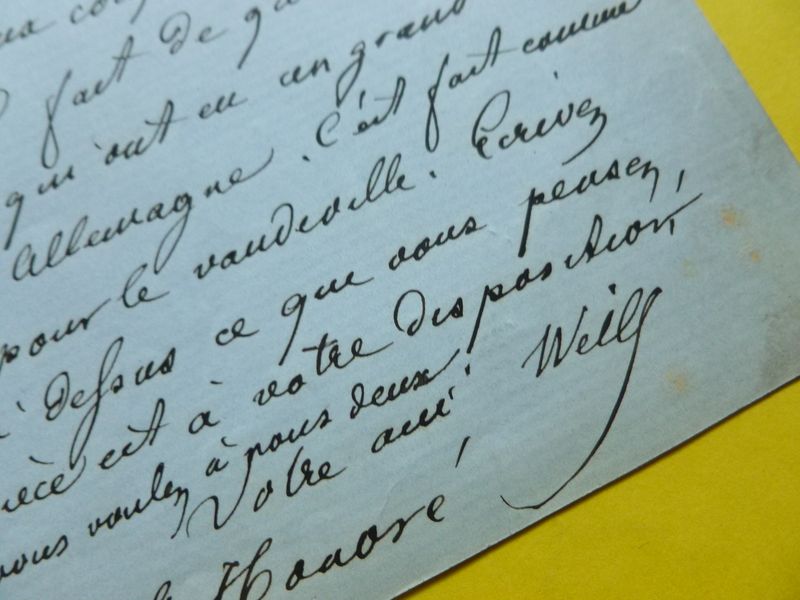 fait de
qu'ont eu un grand
Allemagne. C'est fait comme
pour le vaudeville. Ecrivez
dessus ce que vous pensez,
ièce est à votre disposition,
vous voulez à nous deux.
Votre ami Weill
Honoré